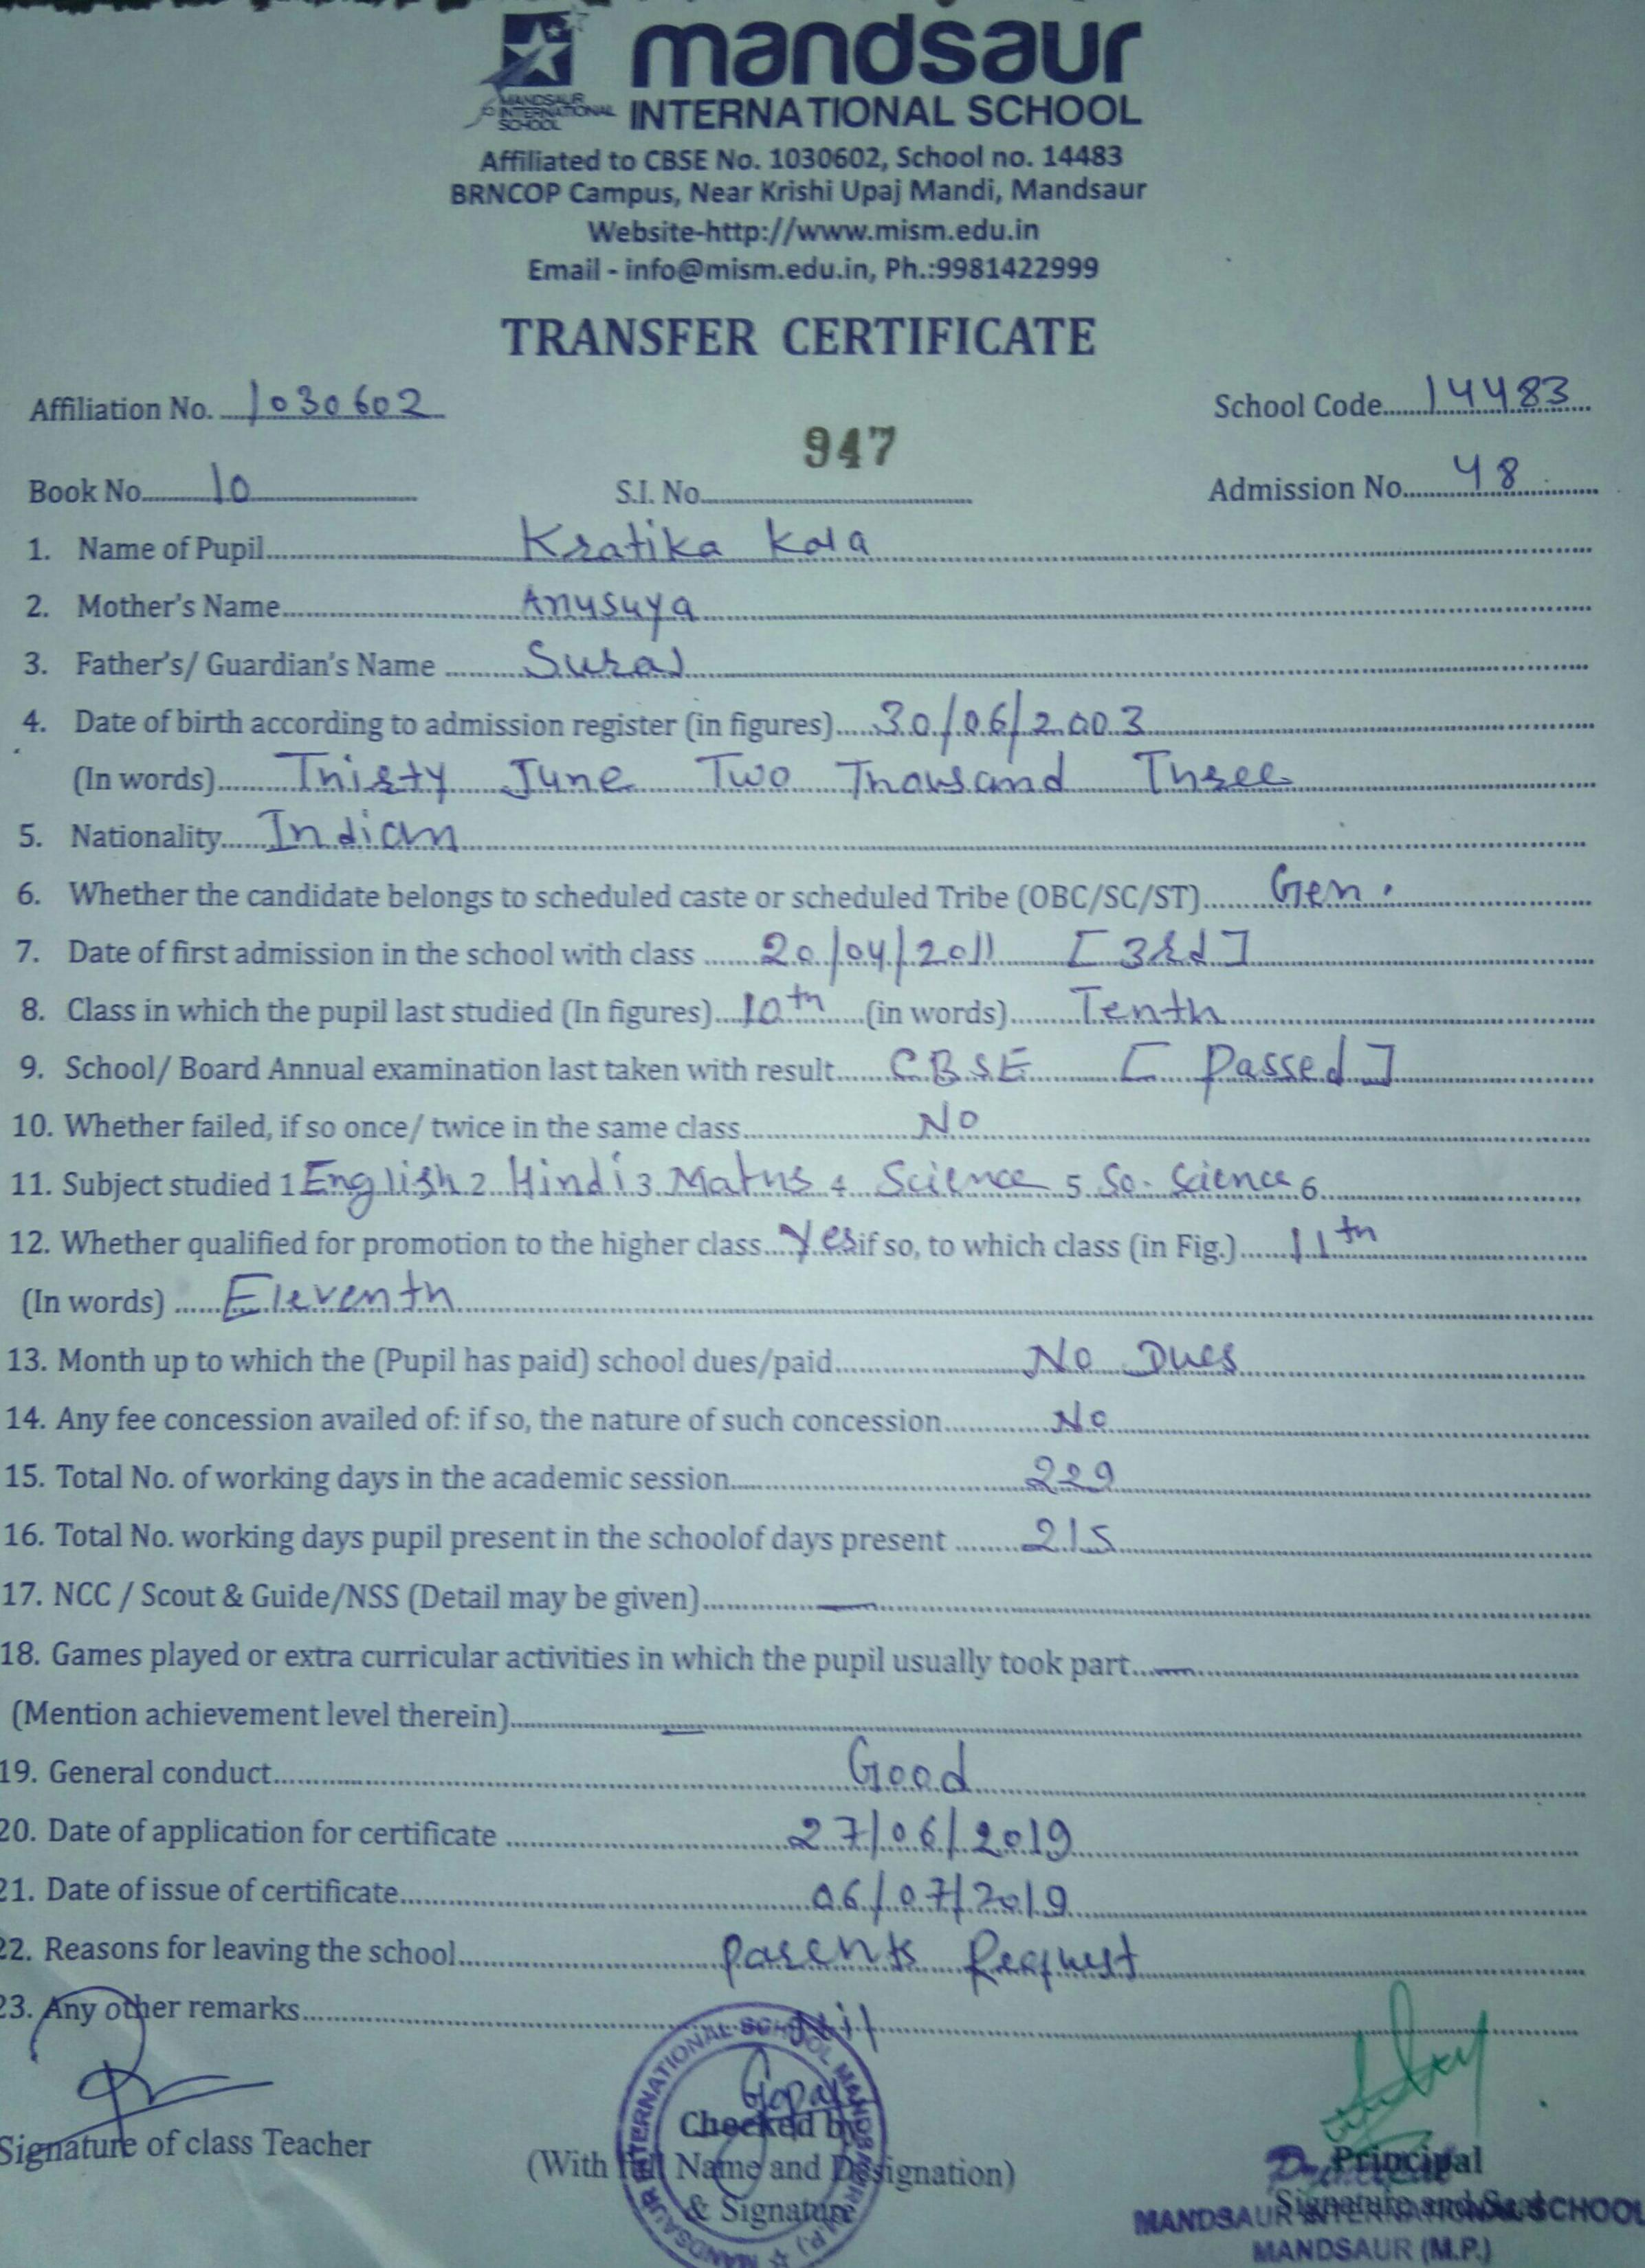 mandsaur
INTERNATIONAL SCHOOL
MANDSAUR
INTERNATIONAL
SCHOOL
Affiliated to CBSE No. 1030602, School no. 14483
BRNCOP Campus, Near Krishi Upaj Mandi, Mandsaur
Website-http://www.mism.edu.in
Email - info@mism.edu.in, Ph.:9981422999
TRANSFER CERTIFICATE
Affiliation No. 1030602 School Code 14483
947
Book No 10 S.I. No. Admission No. 48
1. Name of Pupil Kratika Kala
2. Mother's Name Anusuya
3. Father's/ Guardian's Name Suraj
4. Date of birth according to admission register (in figures) 30/06/2003
(In words) Thirty June Two Thousand Three
5. Nationality Indian
6. Whether the candidate belongs to scheduled caste or scheduled Tribe (OBC/SC/ST) Gen.
7. Date of first admission in the school with class 20/04/2011 [3rd]
8. Class in which the pupil last studied (In figures) 10th (in words) Tenth
9. School/ Board Annual examination last taken with result CBSE [Passed]
10. Whether failed, if so once/ twice in the same class No
11. Subject studied 1 English 2 Hindi 3 Maths 4 Science 5 So. Science 6
12. Whether qualified for promotion to the higher class Yes if so, to which class (in Fig.) 11th
(In words) Eleventh
13. Month up to which the (Pupil has paid) school dues/paid No Dues
14. Any fee concession availed of: if so, the nature of such concession No
15. Total No. of working days in the academic session 229
16. Total No. working days pupil present in the schoolof days present 215
17. NCC / Scout & Guide/NSS (Detail may be given) —
18. Games played or extra curricular activities in which the pupil usually took part —
(Mention achievement level therein) —
19. General conduct Good
20. Date of application for certificate 27/06/2019
21. Date of issue of certificate 06/07/2019
22. Reasons for leaving the school Parents Request
23. Any other remarks Nil
Gopal
Signature of class Teacher
Checked by
(With full Name and Designation)
& Signature
MANDSAUR INTERNATIONAL SCHOOL MANDSAUR (M.P.)
Principal
Signature and Seal
Principal
MANDSAUR INTERNATIONAL SCHOOL
MANDSAUR (M.P.)